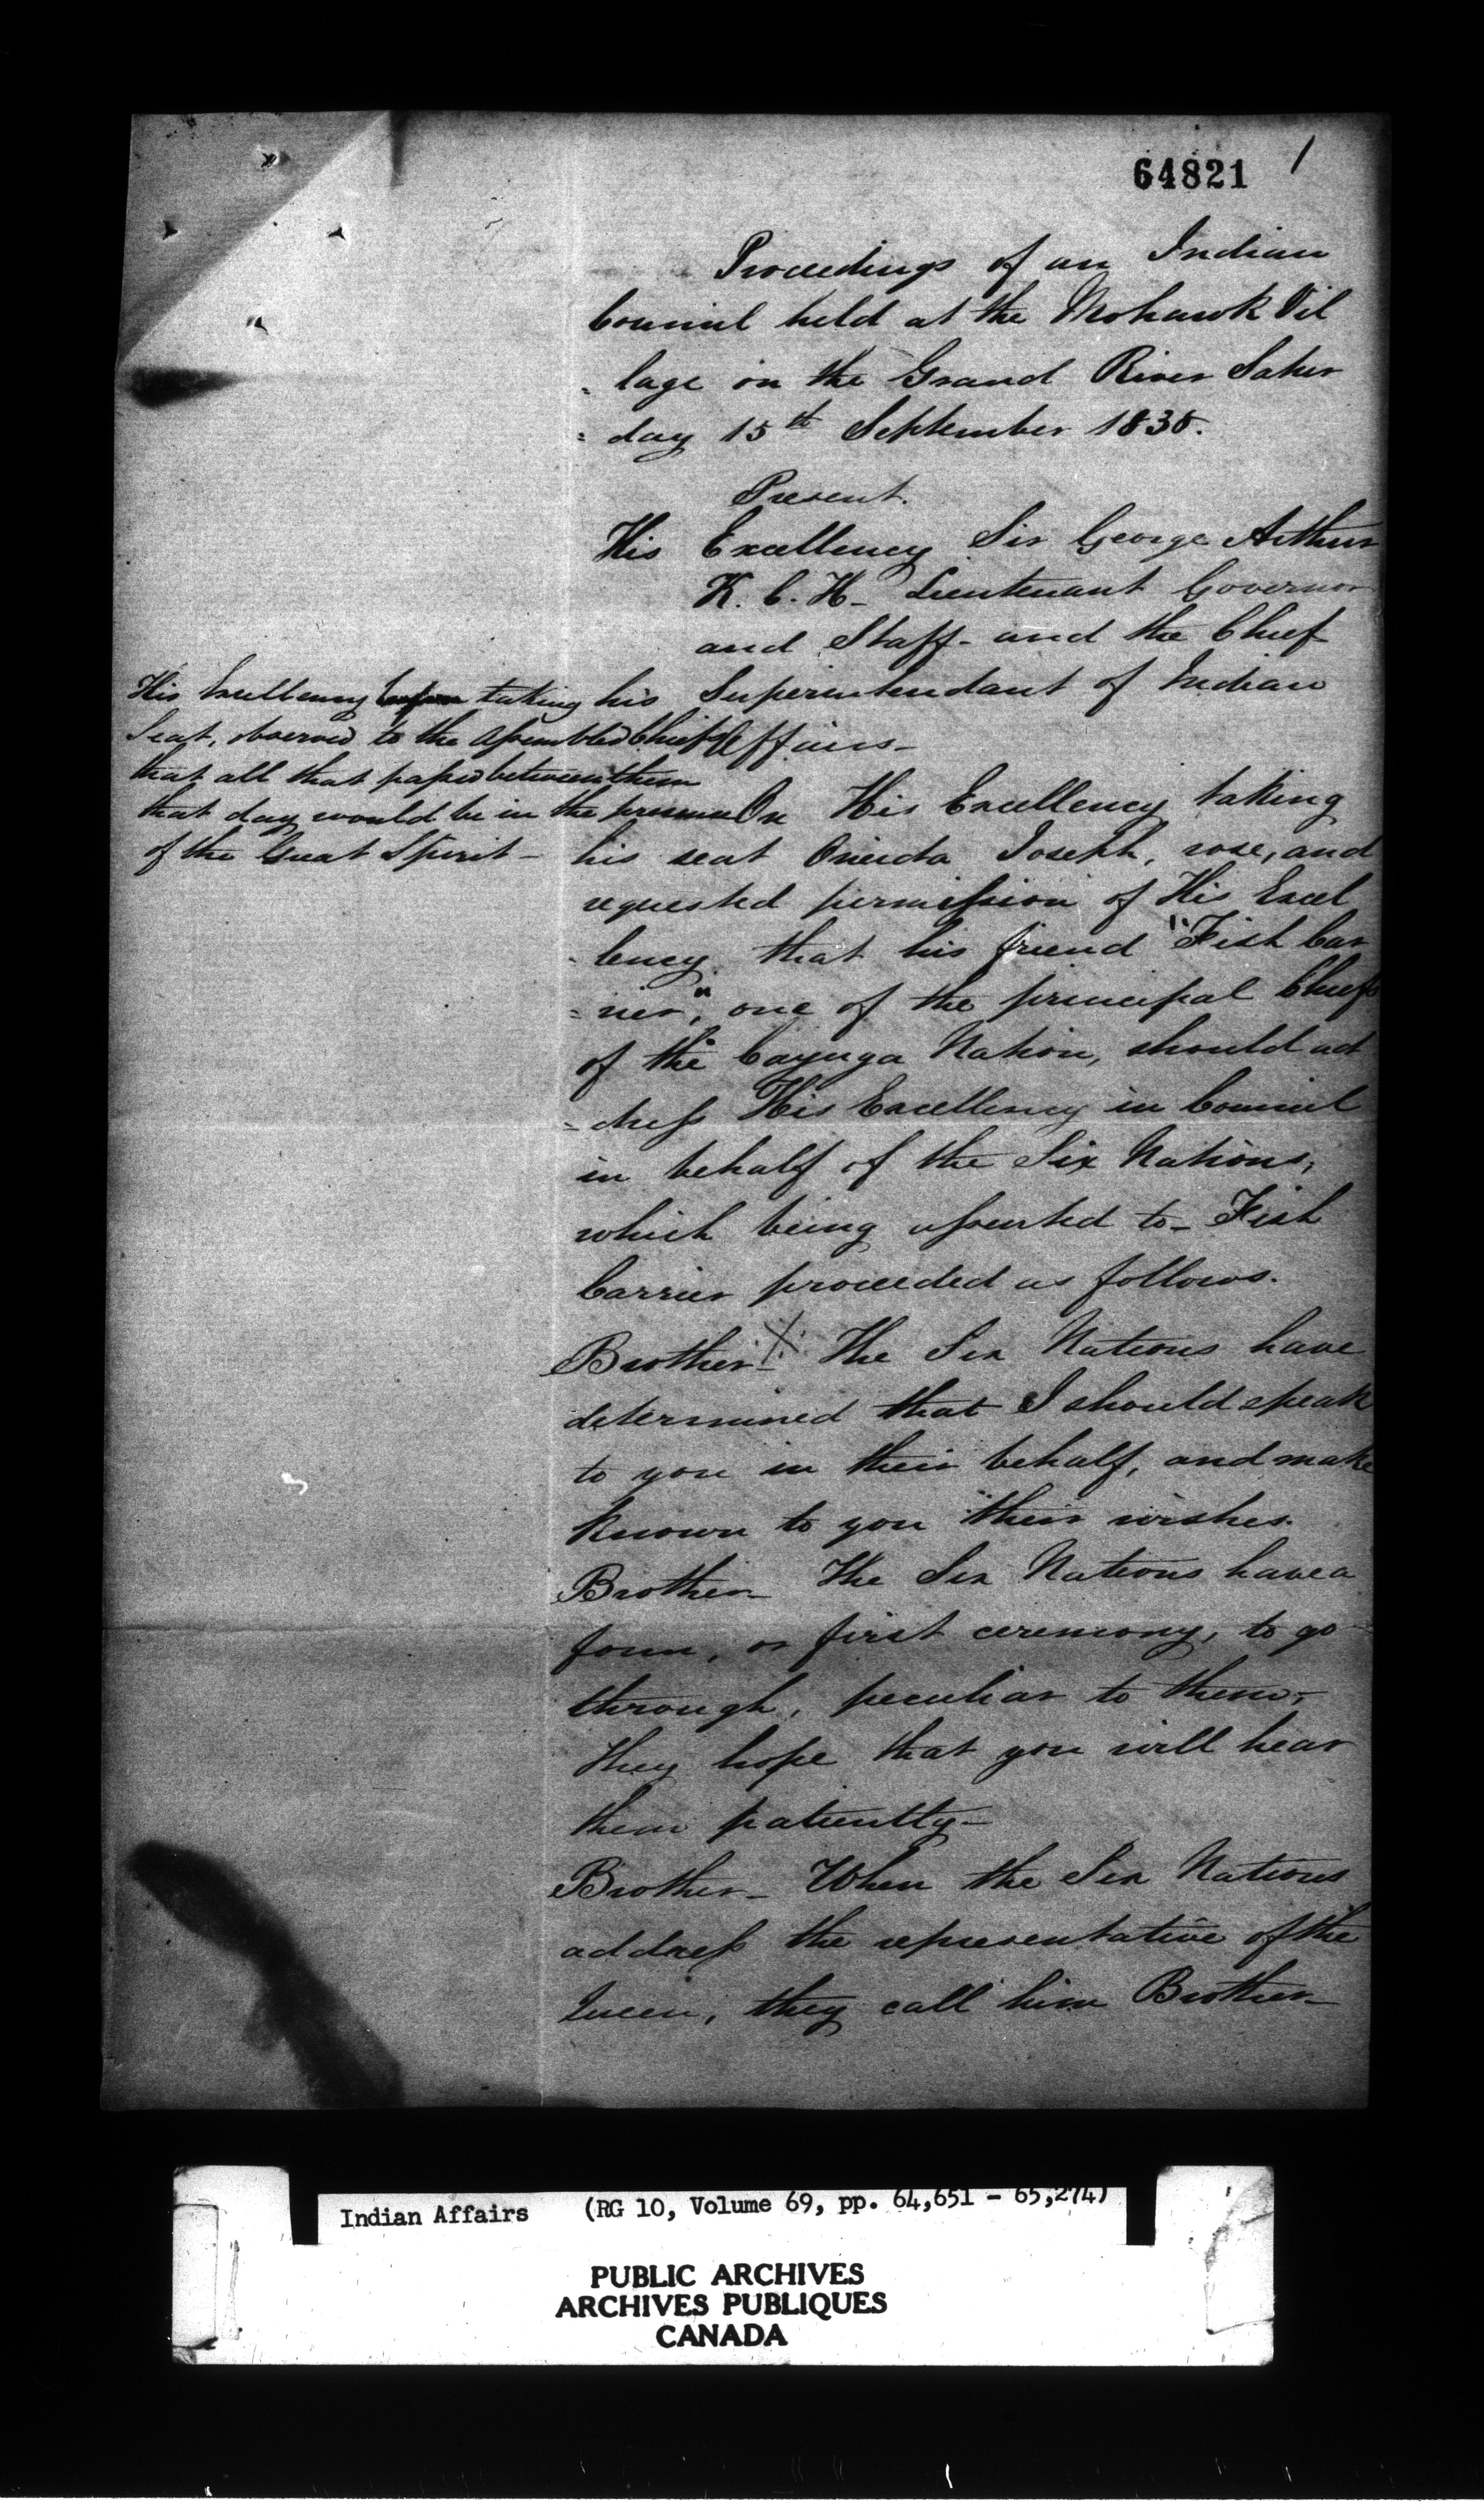 64821 1
Proceedings of an Indian
Council held at the Mohawk Vil
= lage on the Grand River Satur
= day 15th September 1838.
Present.
His Excellency Sir George Arthur
K. C. H- Lieutenant Governor
and Staff- and the Chief
Superintendant of Indian
Affairs-
His Excellency upon taking his
Seat, observed to the assembled Chiefs
that all that passed between them
that day would be in the presence
of the Great Spirit-
On His Excellency taking
his seat Oneida Joseph, rose, and
requested permission of His Excel
- lency that his friend "Fish Car
= rier," one of the principal Chiefs
of the Cayuga Nation, should ad
= dress His Excellency in Council
in behalf of the Six Nations,
which being assented to- Fish
Carrier proceeded as follows.
Brother- X The Six Nations have
determined that I should speak
to you in their behalf, and make
known to you their wishes.
Brother- The Six Nations have a
form, or first ceremony, to go
through, peculiar to them,-
they hope that you will hear
them patiently-
Brother- When the Six Nations
address the representative of the
Queen, they call him Brother-
Indian Affairs (RG 10, Volume 69, pp. 64,651 - 65,274)
PUBLIC ARCHIVES
ARCHIVES PUBLIQUES
CANADA